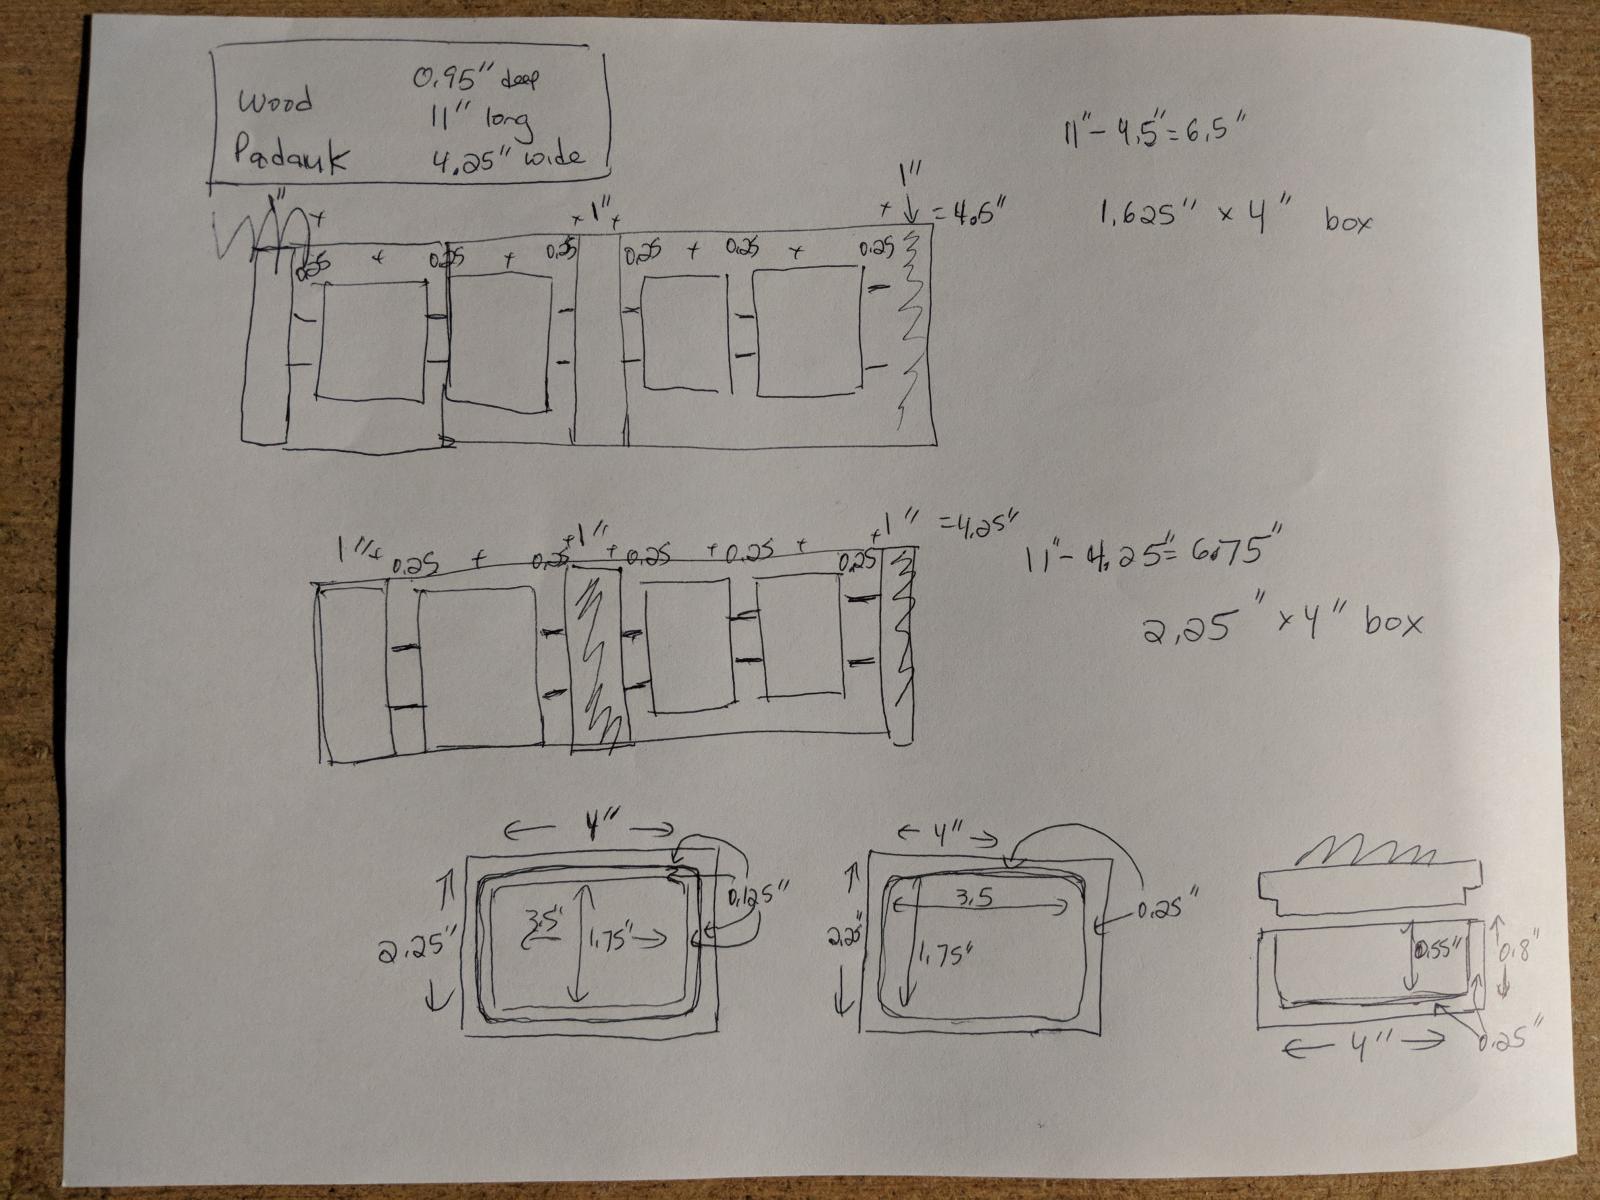 Wood
Padauk
0.95" deep
11" long
4.25" wide
11" - 4.5" = 6.5"
1.625" x 4" box
1" + + 1" + + 1" = 4.5"
0.25 + 0.25 + 0.25 0.25 + 0.25 + 0.25
1" + 0.25 + 0.25 + 1" + 0.25 + 0.25 + 0.25 + 1" = 4.25"
11" - 4.25" = 6.75"
2.25" x 4" box
4"
2.25"
3.5"
1.75"
0.125"
4"
2.25"
3.5
1.75"
0.25"
0.55"
0.8"
4"
0.25"